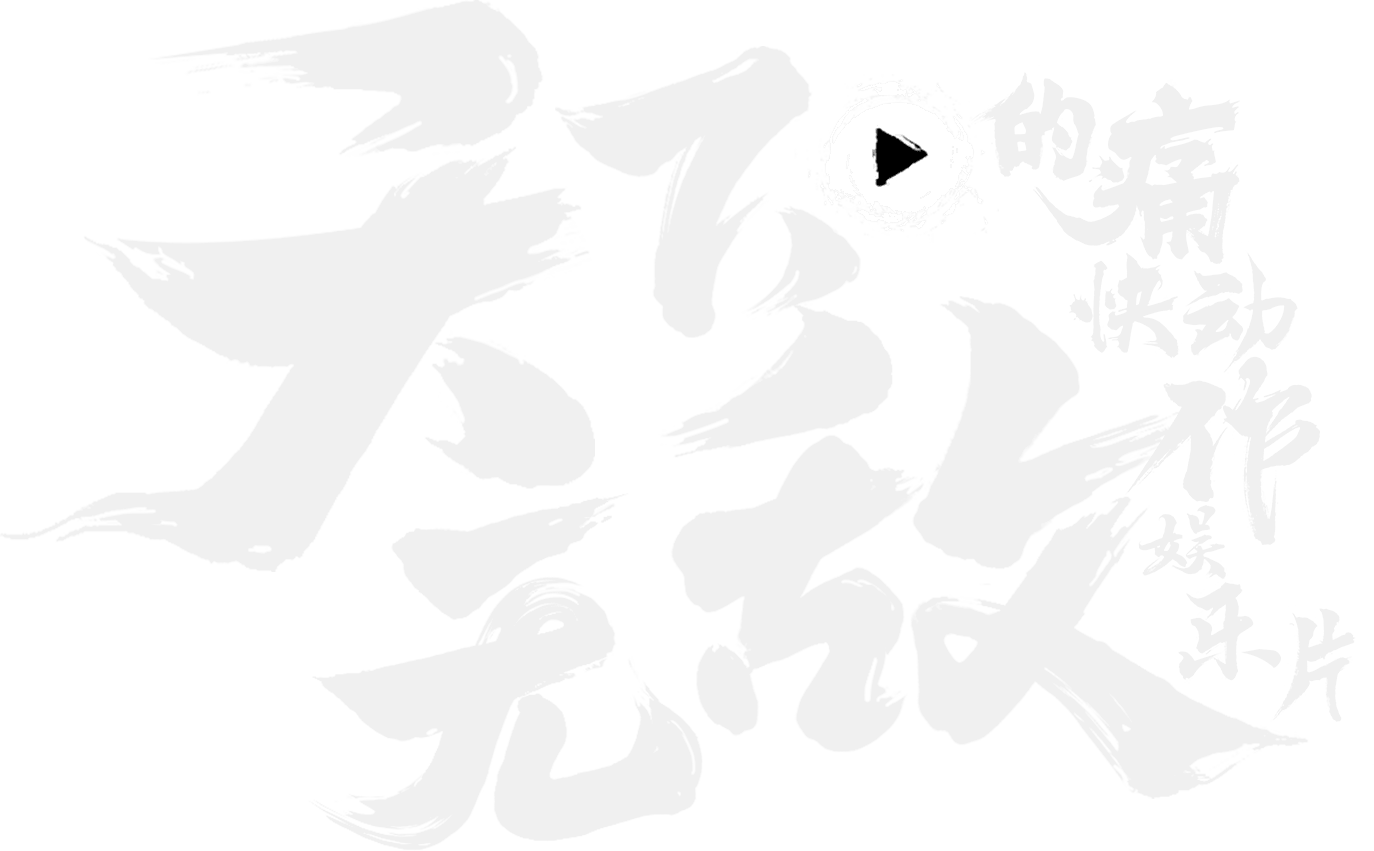 天下
无敌
的痛
快动
作
娱
乐片